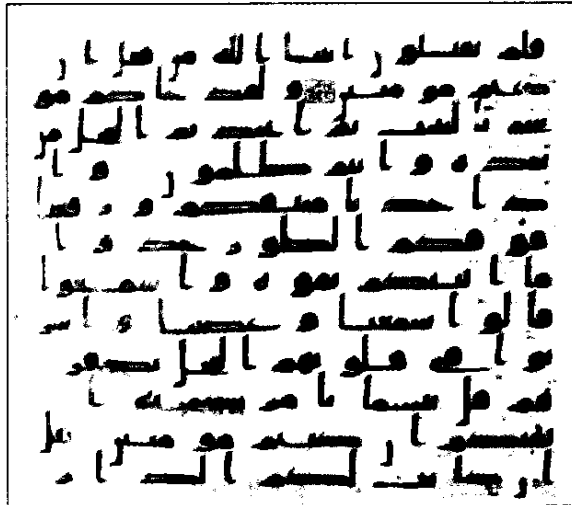 فلم تقتلون انبيا الله من قبل ان
كنتم مومنين ولقد جاكم مو
سى بالبينت ثم اتخذتم العجل من
بعده وانتم ظلمون وا
ذ اخذنا ميثقكم ورفعنا
فوقكم الطور خذوا
ما اتينكم بقوه واسمعوا
قالوا سمعنا وعصينا واشر
بوا في قلوبهم العجل بكفر
هم قل بئسما يامركم به ا
يمنكم ان كنتم مومنين قل
ان كانت لكم الدار